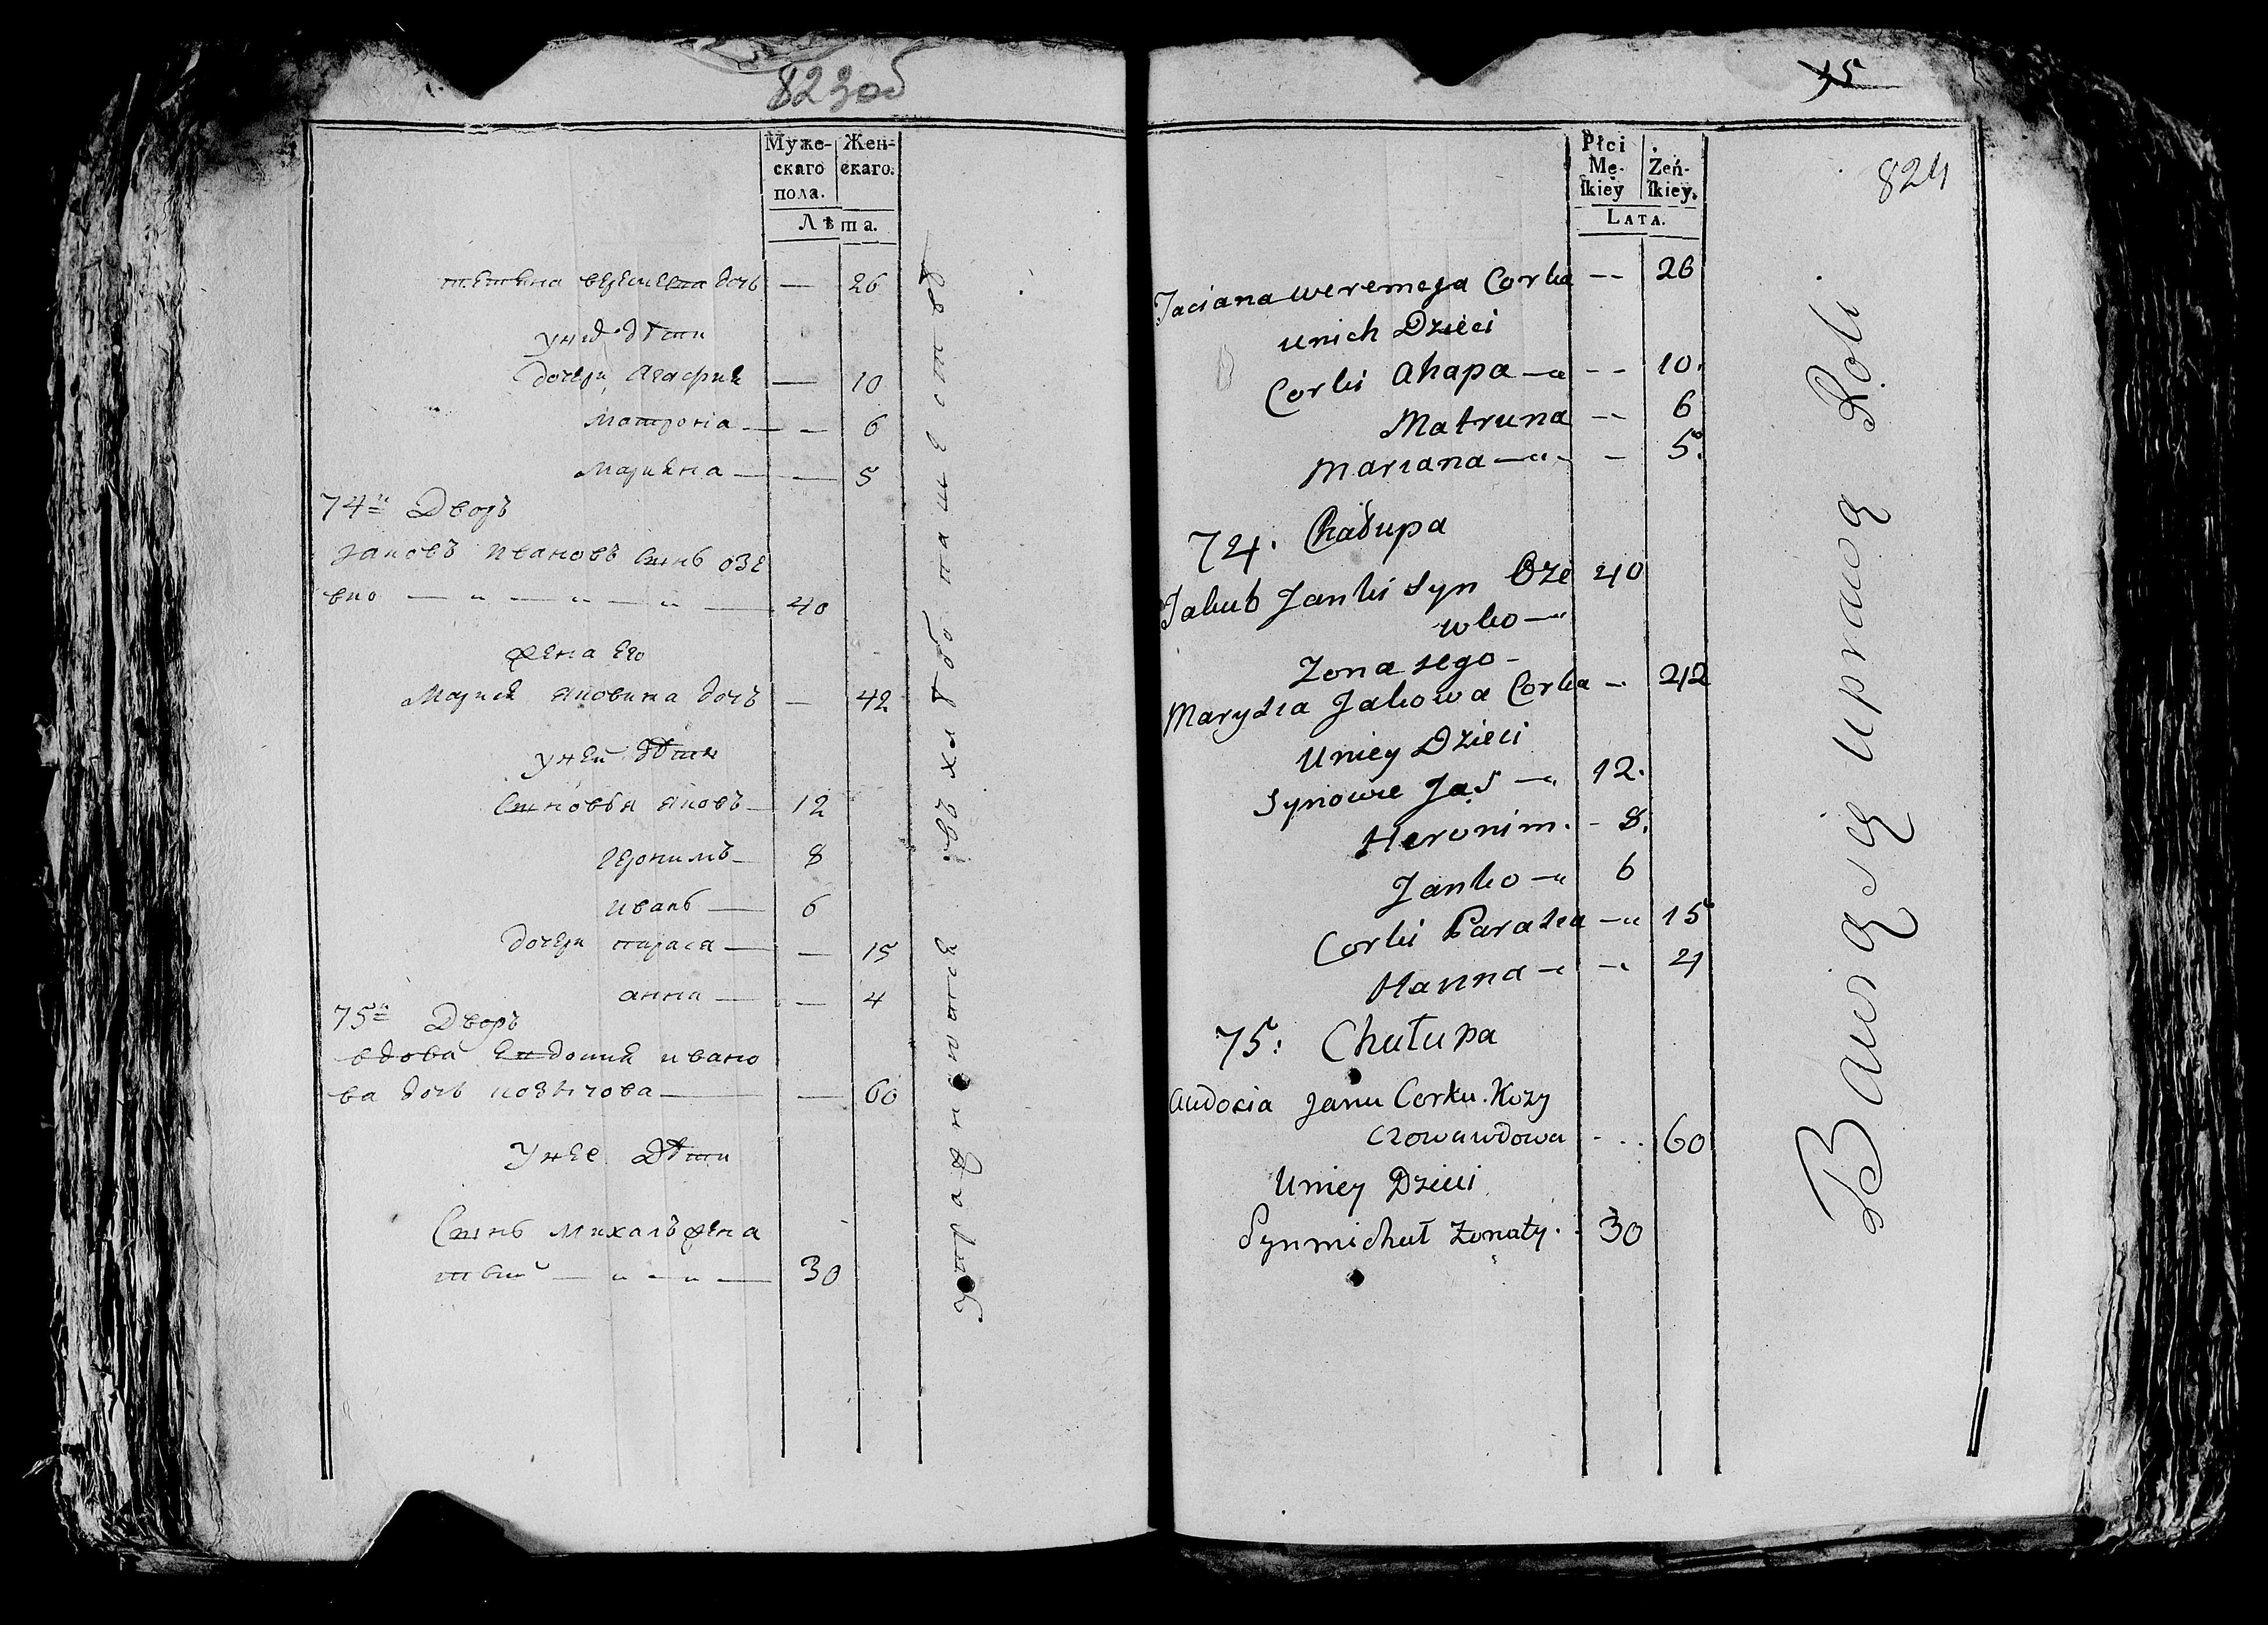 823об
Муже-
скаго
пола.
Жен-
скаго.
Лѣта.
дочь — 26
у них дѣти
дочери Агафия — 10
Матрона — — 6
Марияна — — 5
74й Дворъ
Яковъ Ивановъ сынъ Озе
вко — „ — „ — „ — 40
жена его
Мария Яковина дочь — 42
у ней дѣти
Сыновья Яковъ — 12
Геронимъ — 8
Иванъ — 6
дочери парася — — 15
анна — — 4
75й Дворъ
вдова Евдокия ивано
ва дочь — — 60
у нее Дѣти
Сынъ Михалъ жена
тый — „ — „ — 30
упражняются въ хлѣбопашествѣ
15
824
Płci
Mę-
ſkiey
Żeń-
ſkiey.
LATA.
Taciana weremeja Corka -- 26
unich Dzieci
Corki Ahapa — -- 10.
Matruna -- 6
Mariana — - 5.
74. Chałupa
Jakub Janki Syn Oze 40
wko —
Zona jego -
Marysia Jakowa Corka - 42
Uniey Dzieci
Synowie Jaś — 12.
Heronim. - 8.
Janko — 6
Corki Parasia — 15
Hanna — - 4
75: Chałupa
Audocia Janu Corka. Kozy
czowa wdowa - .. 60
Uniey Dzieci
Syn michał żonaty. . 30
Bawią się uprawą Roli